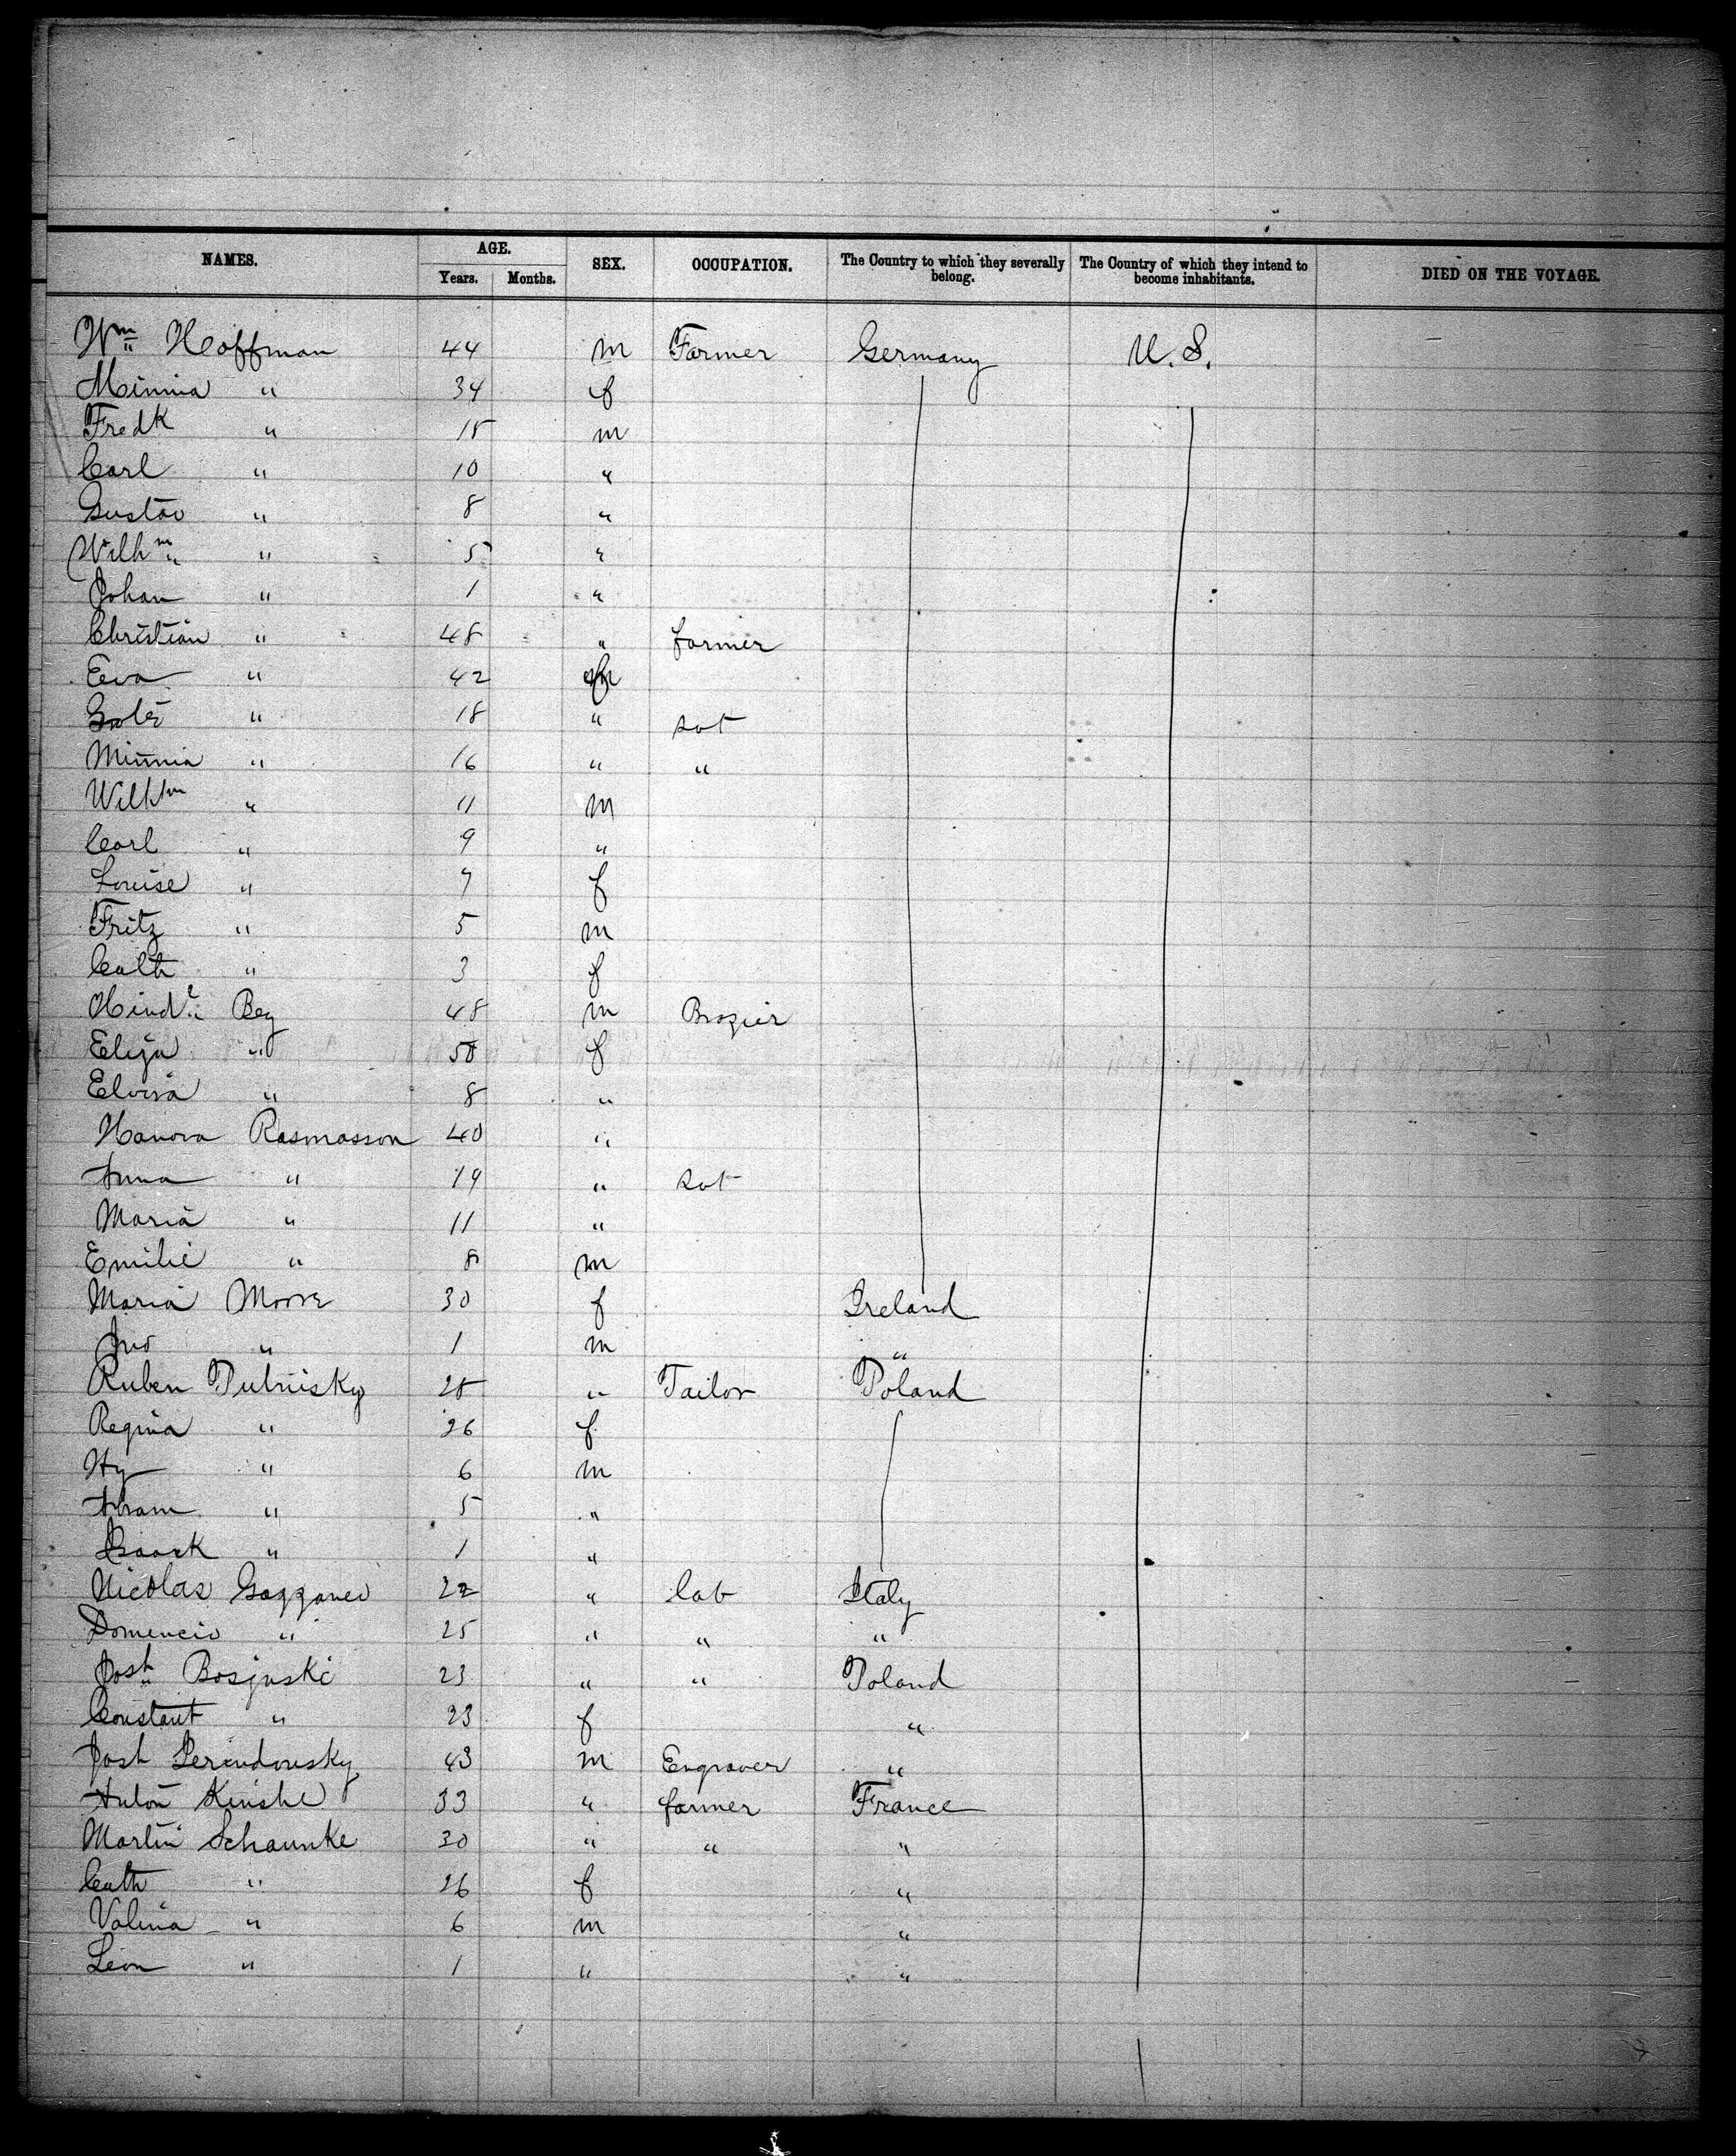 NAMES. AGE. SEX. OCCUPATION. The Country to which they severally belong. The Country of which they intend to become inhabitants. DIED ON THE VOYAGE.
Years. Months.
Wm Hoffman 44 m Farmer Germany U. S.
Minnia " 34 f
Fredk " 15 m
Carl " 10 "
Gustav " 8 "
Wilhm " 5 "
Johan " 1 "
Christian " 48 " farmer
Eva " 42 f
" 18 "
Minnia " 16 " "
Wilhm " 11 m
Carl " 9 "
Louise " 7 f
Fritz " 5 m
Cath " 3 f
Bey 48 m Brazier
Eliza " 50 f
Elvira " 8 "
Hanora Rasmasson 40 "
Anna " 19 "
Maria " 11 "
Emilie " 8 m
Maria Moore 30 f Ireland
Jno " 1 m "
Ruben 28 " Tailor Poland
Regina " 26 f
Hy " 6 m
Abram " 5 "
Isaack " 1 "
Nicolas 22 " lab Italy
Domencio " 25 " " "
Josh 23 " " Poland
Constant " 23 f "
Josh 43 m Engraver "
Anton 33 " farmer France
Martin Schaunke 30 " " "
Cath " 26 f "
Valina " 6 m "
Leon " 1 " "